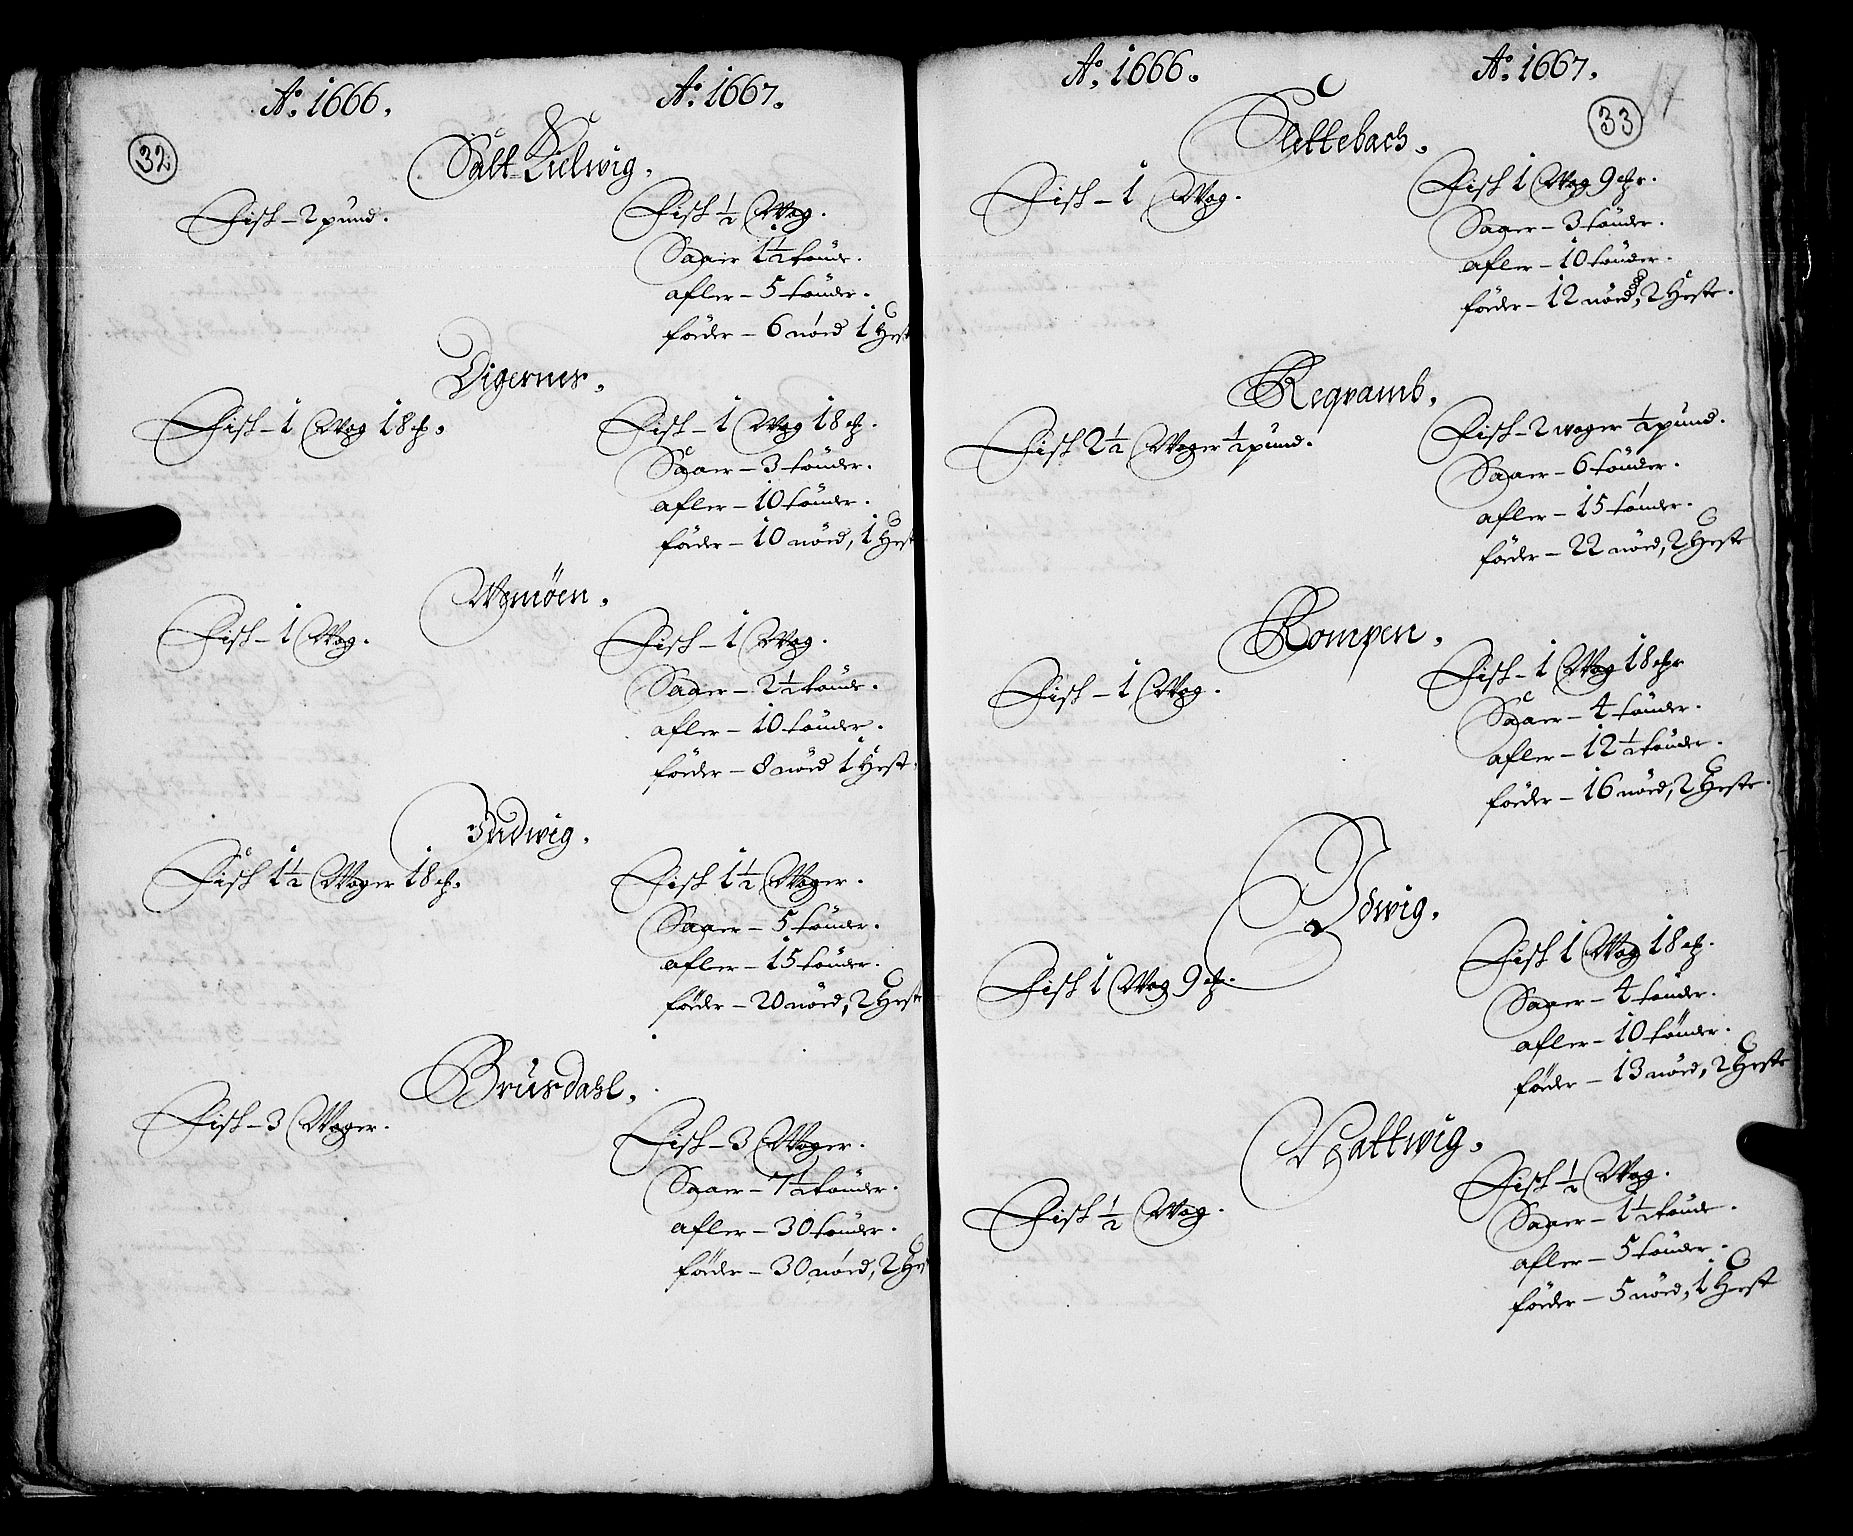 Ao. 1666.
Ao. 1667.
32.
Salt Kielwig.
Fisk - 2 pund.
Fisk ½ Wog.
Saaer 1½ tønde.
afler - 5 tønder.
føder - 6 nød 1 Hest
Digernes.
Fisk - 1 Wog 18 ℔.
Fisk - 1 Wog 18 ℔.
Saaer - 3 tønder.
afler - 10 tønder.
føder - 10 nød, 1 Hest
Wemøen.
Fisk - 1 Wog.
Fisk - 1 Wog.
Saaer - 2½ tønde.
afler - 10 tønder.
føder - 8 nød 1 Hest.
Indwig.
Fisk 1½ Woger 18 ℔.
Fisk 1½ Woger.
Saaer - 5 tønder.
afler - 15 tønder.
føder - 20 nød, 2 Heste
Brusdahl.
Fisk - 3 Woger.
Fisk - 3 Woger.
Saaer - 7½ tønder.
afler - 30 tønder.
føder - 30 nød, 2 Hes
Ao. 1666.
Ao. 1667.
33
17
Slettebach.
Fisk - 1 Wog.
Fisk 1 Wog 9 ℔.
Saaer - 3 tønder.
afler - 10 tønder.
føder - 12 nød, 2 Heste.
Reqvamb.
Fisk 2½ Woger ½ pund.
Fisk - 2 woger ½ pund.
Saaer - 6 tønder.
afler - 15 tønder.
føder - 22 nød, 2 Heste
Rompen.
Fisk - 1 Wog.
Fisk - 1 Wog 18 ℔
Saaer - 4 tønder.
afler - 12½ tønde.
føder - 16 nød, 2 Heste.
Idwig.
Fisk 1 Wog 9 ℔.
Fisk 1 Wog 18 ℔.
Saaer - 4 tønder.
afler - 10 tønder.
føder - 13 nød, 2 Heste
Hattwig.
Fisk ½ Wog.
Fisk ½ Wog.
Saaer - 1½ tønde.
afler - 5 tønder.
føder - 5 nød, 1 Hest